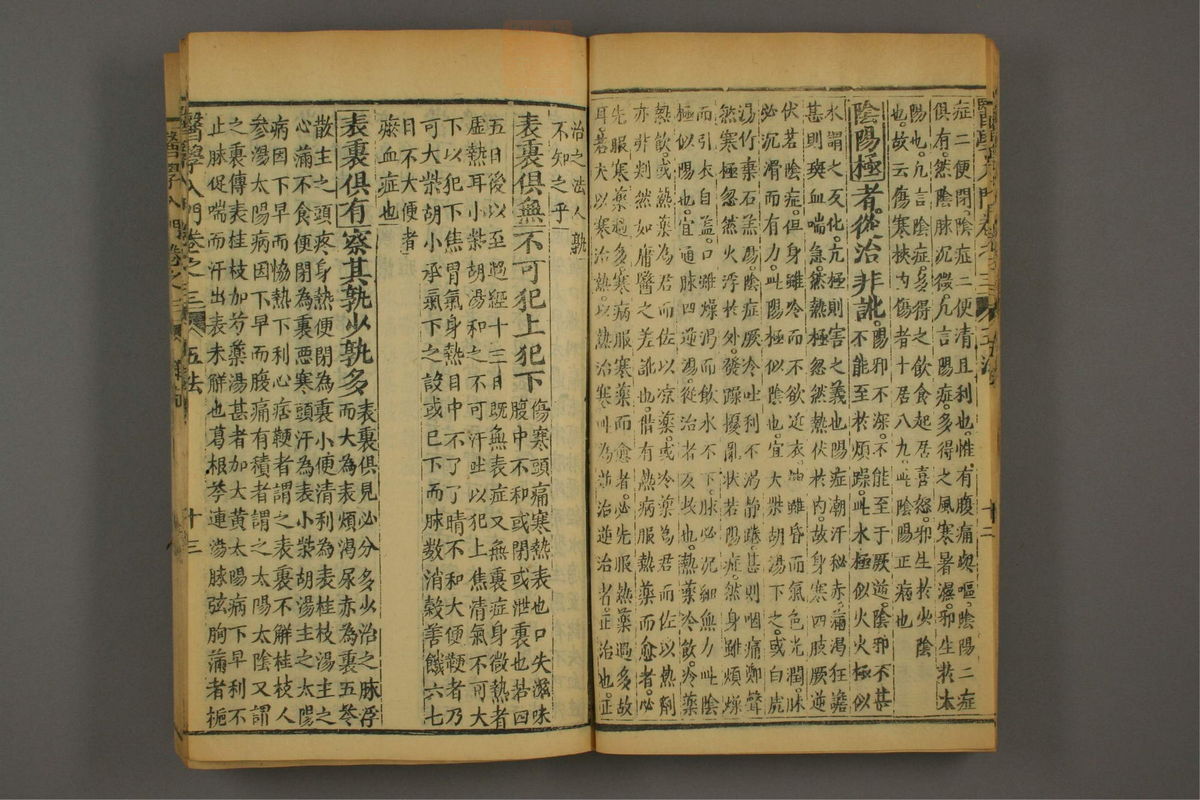 症二便閉陰症二便清且利也惟有腹痛與嘔陰陽二症
俱有然陰脉沉微凢言陽症多得之風寒暑濕邪生於太
陽也凢言陰症多得之飲食起居喜怒邪生於少陰
也故云傷寒挾內傷者十居八九此陰陽正病也
陰陽極者從治非訛陽邪不深不能至于厥逆陰邪不甚
不能至於煩躁此水極似火火極似
水謂之反化亢極則害之義也陽症潮汗秘赤滿渴狂譫
甚則斑血喘急然熱極忽然熱伏於內故身寒四肢厥逆
伏若陰症但身雖冷而不欲近衣神雖昏而氣色光潤脉
必沉滑而有力此陽極似陰也宜大柴胡湯下之或白虎
湯竹葉石羔湯陰症厥冷吐利不渴静踡甚則咽痛鄭聲
然寒極忽然火浮於外發躁擾亂狀若陽症然身雖煩燥
而引衣自盖口雖燥渴而飲水不下脉必沉細無力此陰
極似陽也宜通脉四逆湯從治者反攻也熱藥冷飲冷藥
熱飲或熱藥為君而佐以凉藥或冷藥為君而佐以熱劑
亦非判然如庸醫之差訛也惟有熱病服熱藥而愈者必
先服寒藥過多寒病服寒藥而愈者必先服熱藥過多故
耳若夫以寒治熱以熱治寒此為逆治逆治者正治也正
醫學入門卷之三
五法
十二
治之法人孰
不知之乎
表裏俱無不可犯上犯下傷寒頭痛寒熱表也口失滋味
腹中不和或閉或泄裏也若四
五日後以至過經十三日既無表症又無裏症身微熱者
虛熱耳小柴胡湯和之不可汗吐以犯上焦清氣不可大
下以犯下焦胃氣身熱目中不了了睛不和大便鞕者乃
可大柴胡小承氣下之設或已下而脉數消穀善饑六七
日不大便者
瘀血症也
表裏俱有察其孰少孰多表裏俱見必分多少治之脉浮
而大為表煩渴尿赤為裏五苓
散主之頭疼身熱便閉為裏小便清利為表桂枝湯主之
心滿不食便閉為裏悪寒頭汗為表小柴胡湯主之太陽
病因下早而恊熱下利心痞鞕者謂之表裏不觧桂枝人
参湯太陽病因下早而腹痛有積者謂之太陽太陰又謂
之裏傳表桂枝加芍藥湯甚者加大黄太陽病下早利不
止脉促喘而汗出表未觧也葛根芩連湯脉弦胸滿者梔
醫學入門卷之三
五法
十三